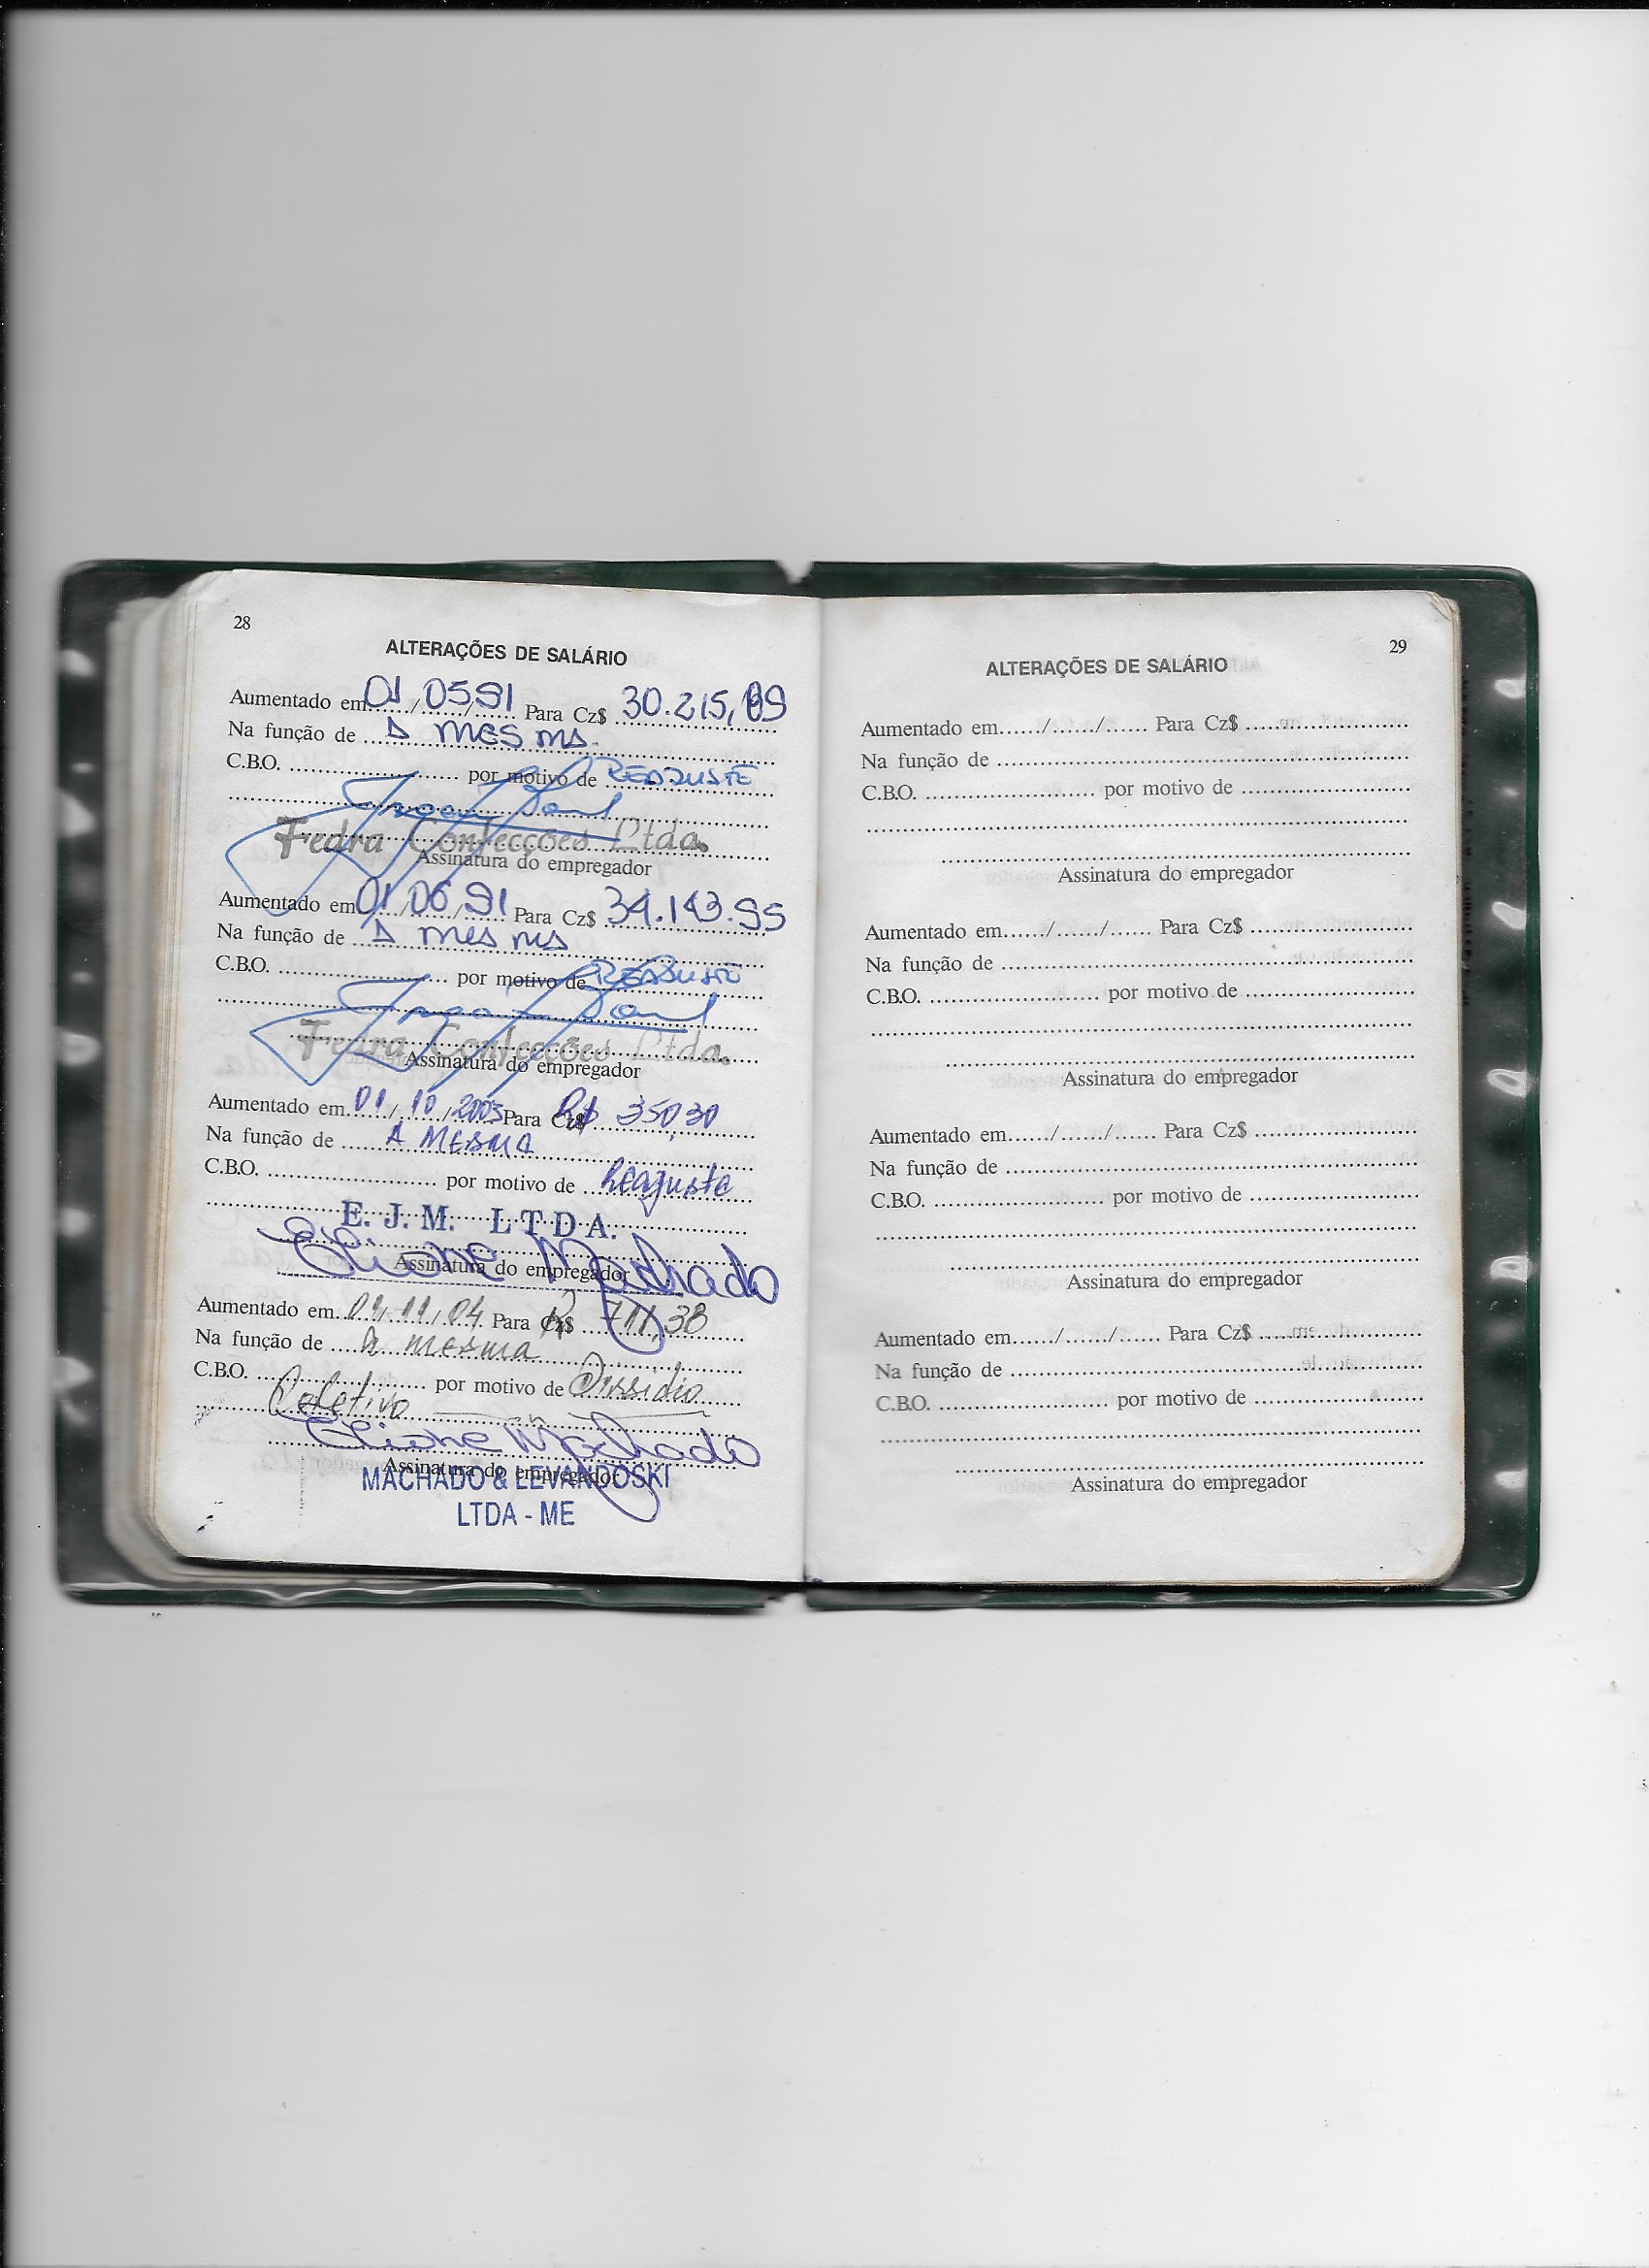 28
ALTERAÇÕES DE SALÁRIO
Aumentado em 01/05/91 Para Cz$ 30.215,89
Na função de A mesma.
C.B.O. ........ por motivo de REAJUSTE
Fedra Confecções Ltda.
Assinatura do empregador
Aumentado em 01/06/91 Para Cz$ 34.143.95
Na função de A mesma
C.B.O. ........ por motivo de REAJUSTE
Fedra Confecções Ltda.
Assinatura do empregador
Aumentado em 01/10/2003 Para Cz$ R$ 350,30
Na função de A MESMA
C.B.O. ........ por motivo de Reajuste
E. J. M. LTDA.
Eliane Machado
Assinatura do empregador
Aumentado em 01/11/04 Para Cz$ R$ 711,38
Na função de a mesma
C.B.O. ........ por motivo de Dissídio
Coletivo
Eliane Machado
Assinatura do empregador
MACHADO & LEVANDOSKI
LTDA - ME
29
ALTERAÇÕES DE SALÁRIO
Aumentado em....../....../...... Para Cz$ ........
Na função de ........
C.B.O. ........ por motivo de ........
Assinatura do empregador
Aumentado em....../....../...... Para Cz$ ........
Na função de ........
C.B.O. ........ por motivo de ........
Assinatura do empregador
Aumentado em....../....../...... Para Cz$ ........
Na função de ........
C.B.O. ........ por motivo de ........
Assinatura do empregador
Aumentado em....../....../...... Para Cz$ ........
Na função de ........
C.B.O. ........ por motivo de ........
Assinatura do empregador